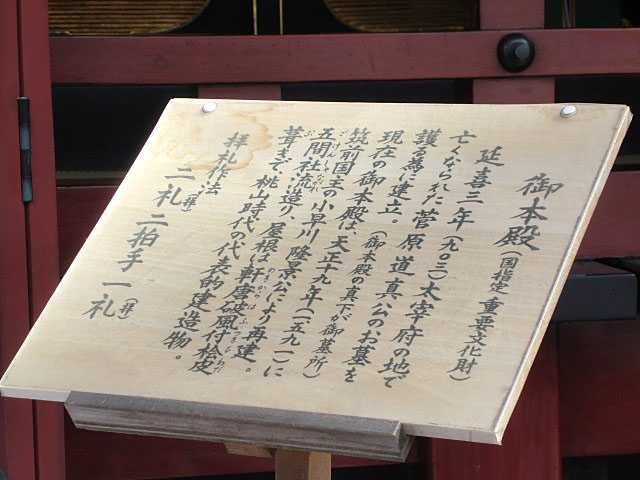 御本殿(国指定 重要文化財)
延喜三年(九〇三)太宰府の地で
亡くなられた菅原道真公のお墓を
護る為に建立。(御本殿の真下が御墓所)
現在の御本殿は、天正十九年(一五九一)に
筑前国主の小早川隆景公により再建。
五間社流造り、屋根は軒唐破風付桧皮
葺きで、桃山時代の代表的建造物。
拝礼作法
二礼(拝) 二拍手 一礼(拝)